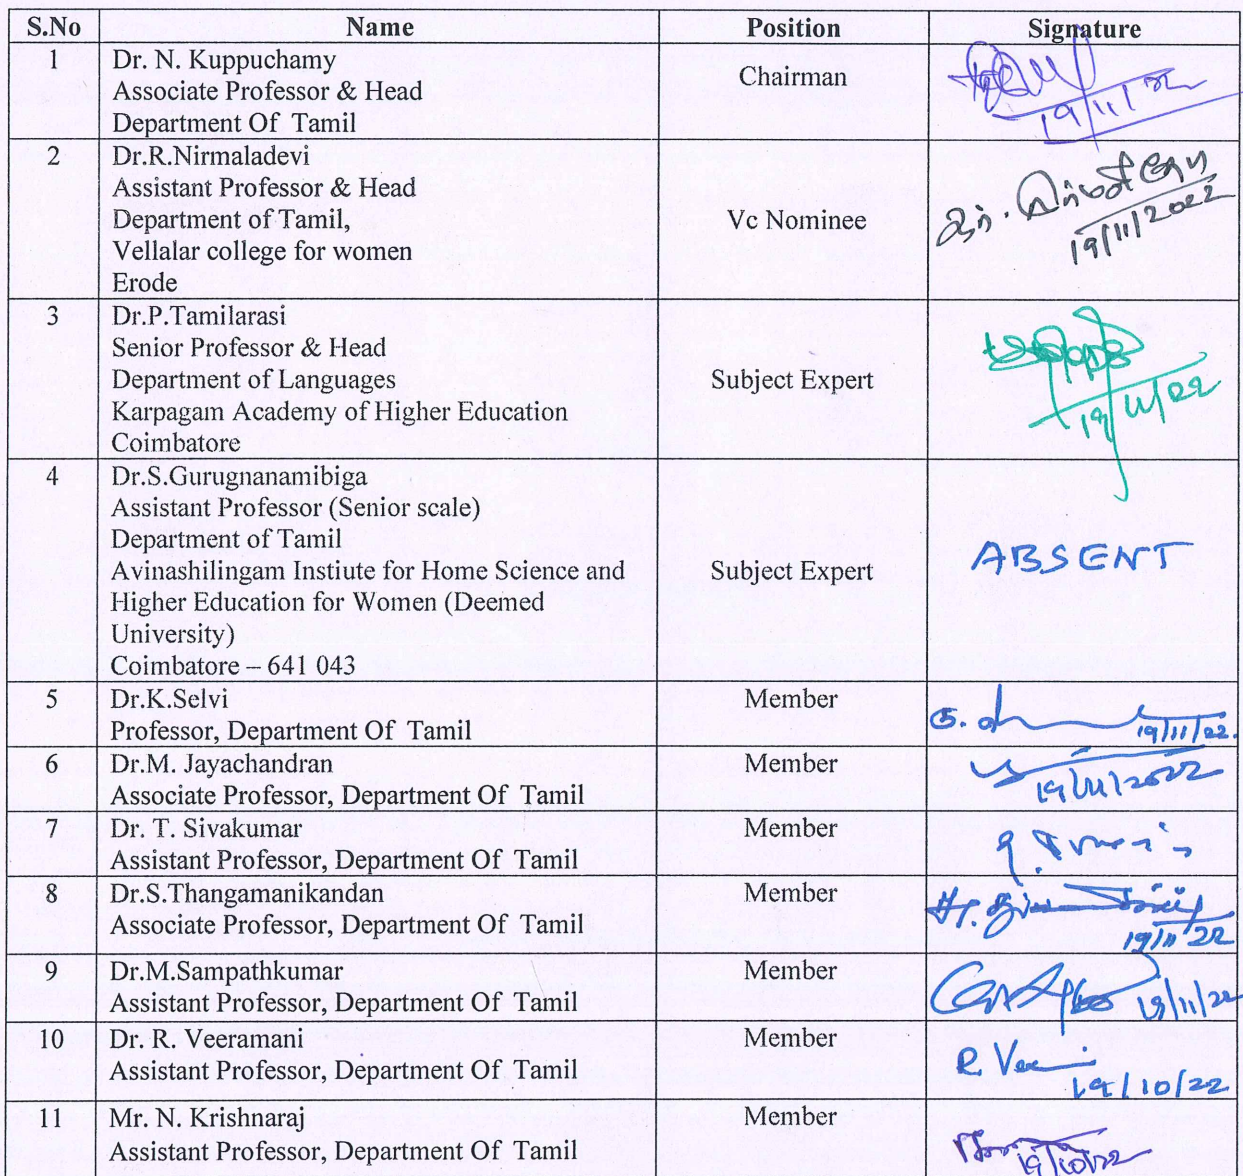 S.No Name Position Signature
1 Dr. N. Kuppuchamy
Associate Professor & Head
Department Of Tamil
Chairman
19/11/22
2 Dr.R.Nirmaladevi
Assistant Professor & Head
Department of Tamil,
Vellalar college for women
Erode
Vc Nominee
19/11/2022
3 Dr.P.Tamilarasi
Senior Professor & Head
Department of Languages
Karpagam Academy of Higher Education
Coimbatore
Subject Expert
19/11/22
4 Dr.S.Gurugnanamibiga
Assistant Professor (Senior scale)
Department of Tamil
Avinashilingam Instiute for Home Science and
Higher Education for Women (Deemed
University)
Coimbatore – 641 043
Subject Expert
ABSENT
5 Dr.K.Selvi Member
Professor, Department Of Tamil
19/11/22.
6 Dr.M. Jayachandran Member
Associate Professor, Department Of Tamil
19/11/2022
7 Dr. T. Sivakumar Member
Assistant Professor, Department Of Tamil
8 Dr.S.Thangamanikandan Member
Associate Professor, Department Of Tamil
19/11/22
9 Dr.M.Sampathkumar Member
Assistant Professor, Department Of Tamil
19/11/22
10 Dr. R. Veeramani Member
Assistant Professor, Department Of Tamil
19/10/22
11 Mr. N. Krishnaraj Member
Assistant Professor, Department Of Tamil